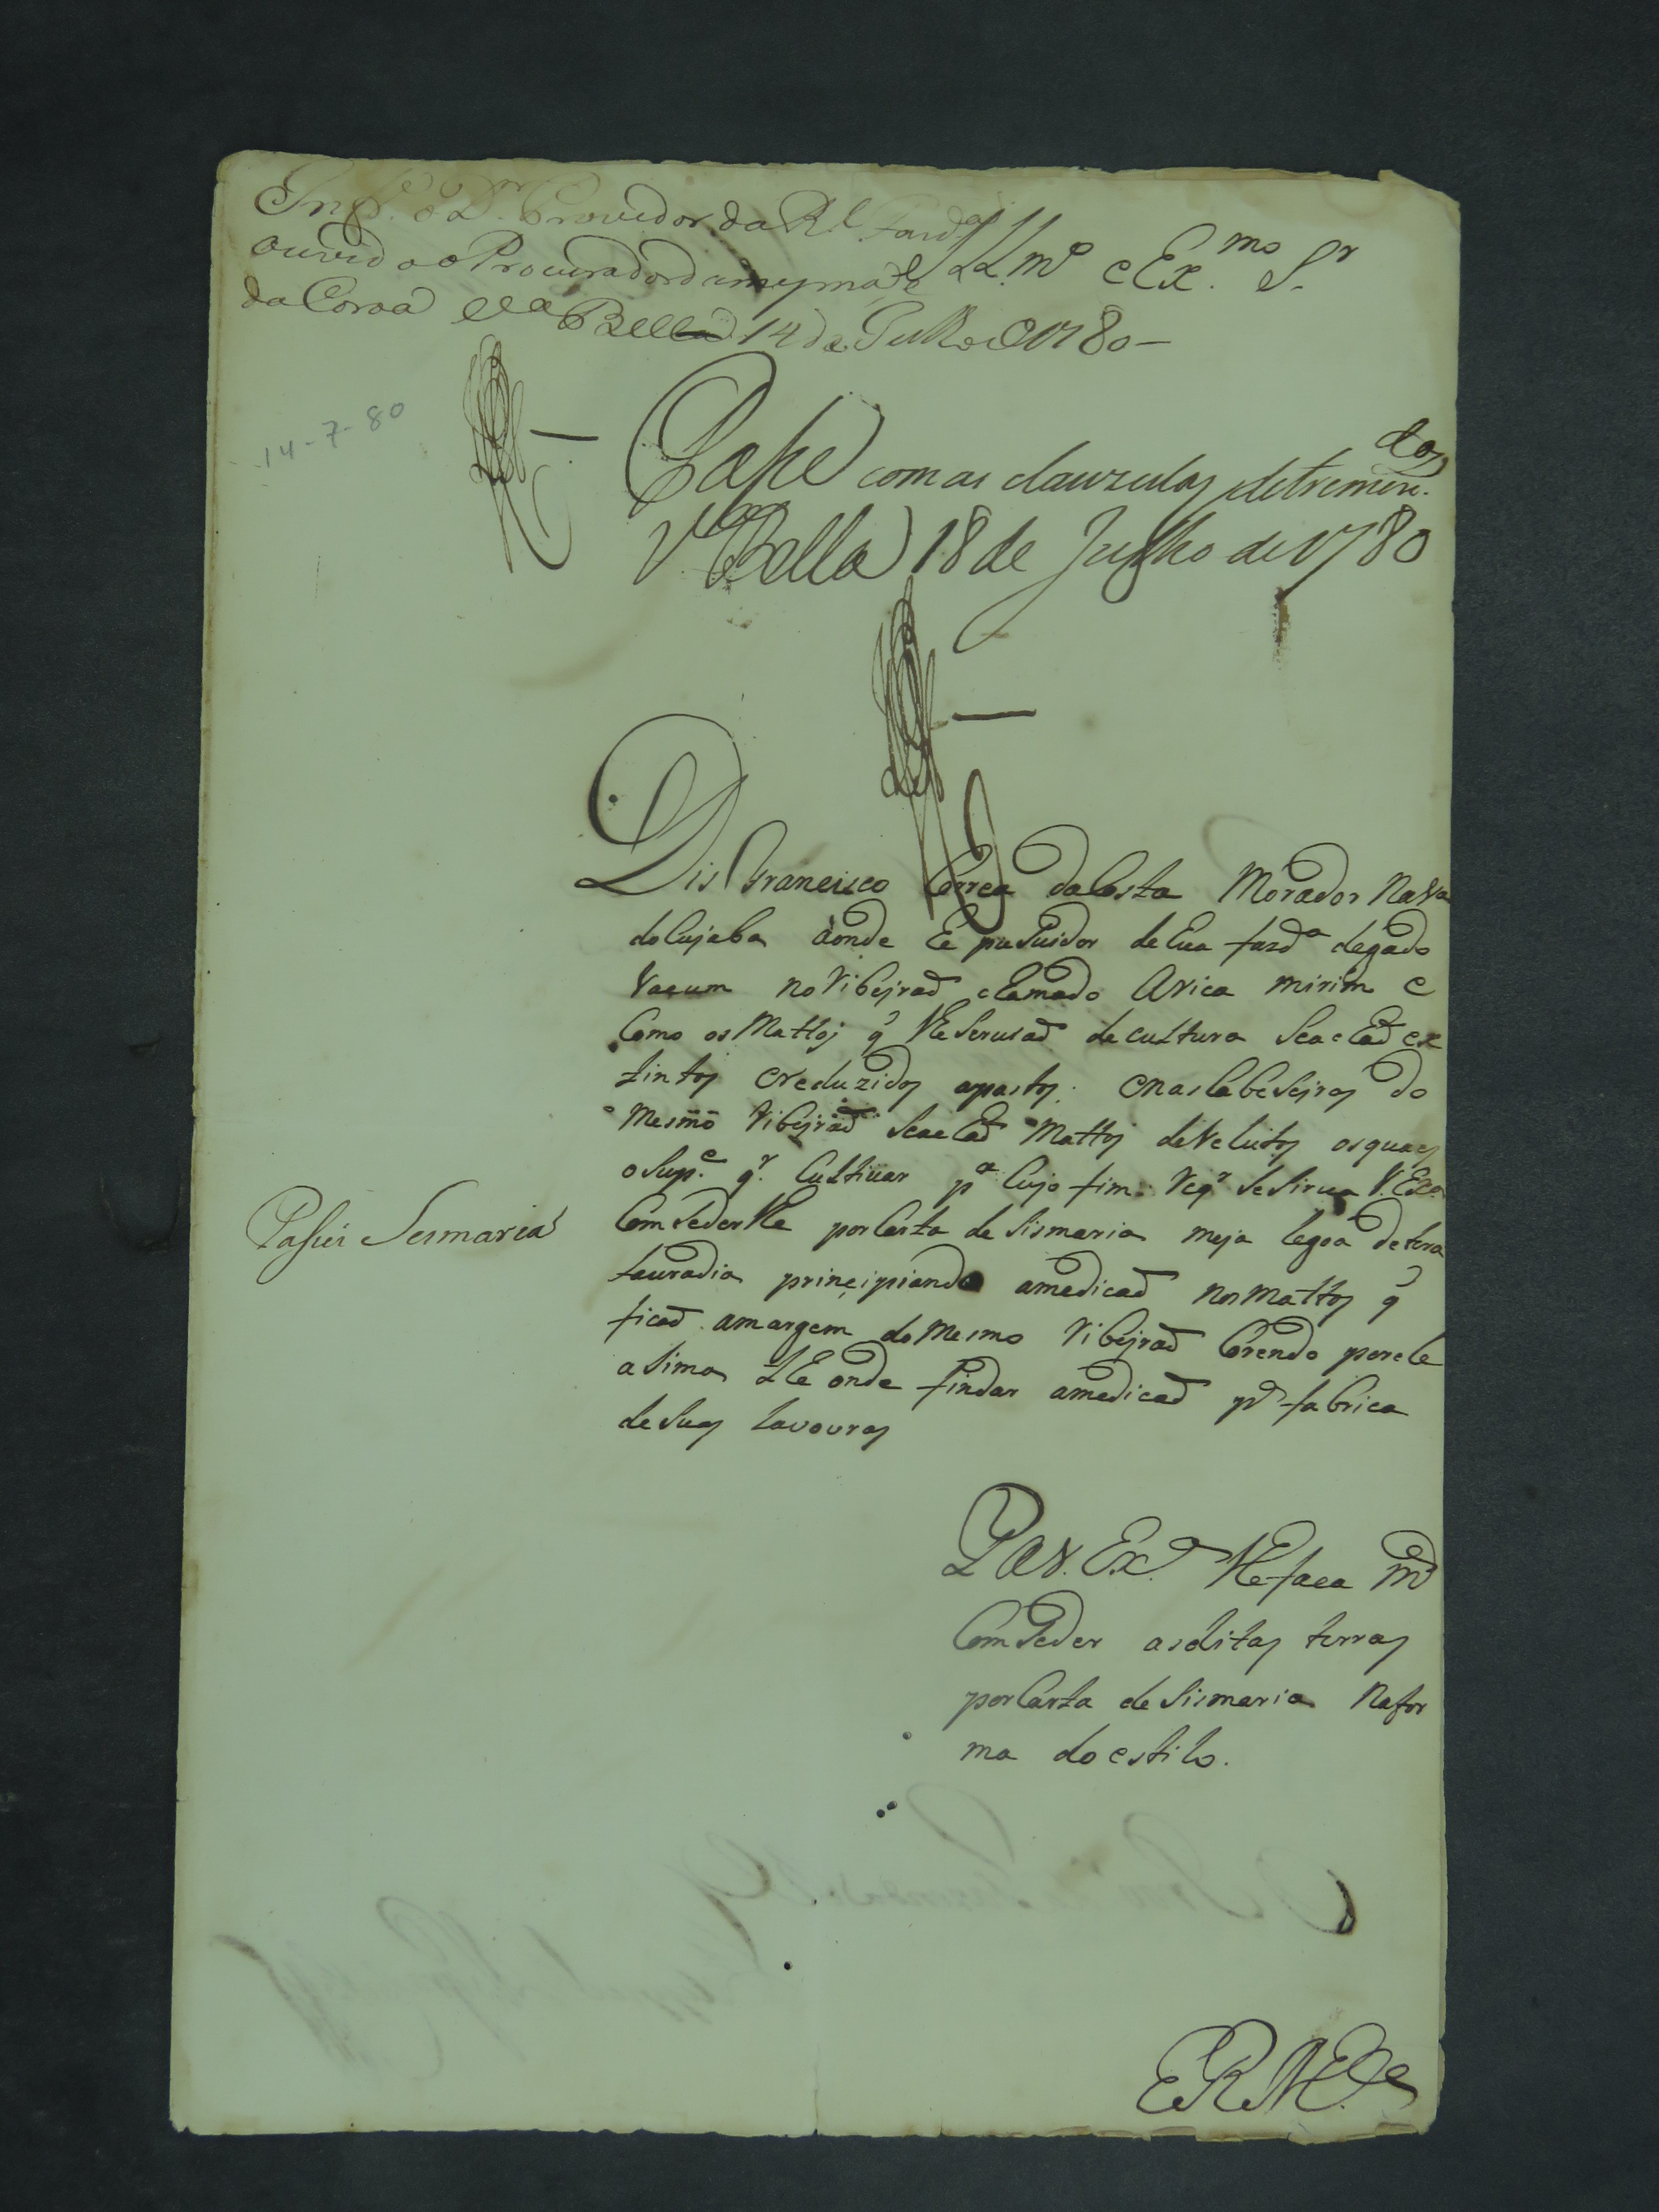 Inf.e o D.r Provedor da R.l Fazd.a
ouvido o Procurador da mesma e
da Coroa V.a Bella 14 de Julho de 1780 —
Ill.mo e Ex.mo S.r
14-7-80
Passe com as clauzulas detremin.das
V.a Bella 18 de Julho de 1780
Dis Francisco Correa da Costa Morador na V.a
do Cujaba donde he pusuidor de hua fazd.a de gado
Vacum no Ribejraõ chamado Arica mirim e
Como os Mattos q̃ lhe Seruiaõ de cultura Se achaõ ex
tintos e reduzidos apastos. e nas Cabeseiras do
Mesmo Ribejraõ Se achaõ Mattos deVelutos os quaes
o Sup.e q.r Cultivar p.a Cujo fim. Req.r Se Sirva V. Ex.a
Com Seder lhe por Carta de Sismaria meja legoa de tera
lauradia principiando amedicaõ nos Mattos q̃
ficaõ amargem do Mesmo Ribejraõ Corendo por ele
a Sima the onde findar amedicaõ p.a fabrica
de Suas Lavouras
Passei Sesmaria
P. a V. Ex.a lhe faca m.ce
Com Seder as ditas terras
por Carta de Sismaria Nafor
ma do estilo.
E R M.ce